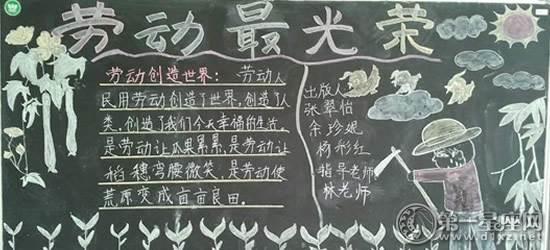 劳动最光荣
劳动创造世界：劳动人
民用劳动创造了世界，创造了人
类，创造了我们今天幸福的生活，
是劳动让瓜果累累，是劳动让
稻穗弯腰微笑，是劳动使
荒原变成亩亩良田。
出版人
张翠怡
余珍妮
杨彩红
指导老师
林老师
第一星座网
www.d1xz.net